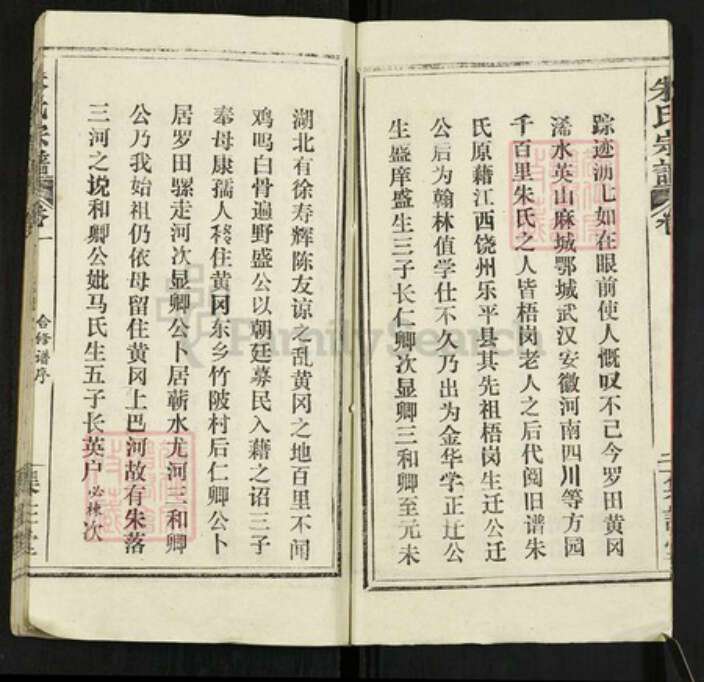 朱氏宗譜
踪迹沥七如在眼前使人慨叹不己今罗田黄冈
浠水英山麻城鄂城武汉安徽河南四川等方园
千百里朱氏之人皆梧岗老人之后代阅旧谱朱
氏原藉江西饶州乐平县其先祖梧岗生迁公迁
公后为翰林值学仕不久乃出为金华学正迁公
生盛庠盛生三子长仁卿次显卿三和卿至元末
湖北有徐寿辉陈友谅之乱黄冈之地百里不闻
鸡鸣白骨遍野盛公以朝廷募民入藉之诏三子
奉母康孺人移住黄冈东乡竹陂村后仁卿公卜
居罗田骡走河次显卿公卜居蕲水尤河三和卿
公乃我始祖仍依母留住黄冈上巴河故有朱落
三河之说和卿公妣马氏生五子长英户必栋次
氏宗譜
卷一
合修谱序
FamilySearch